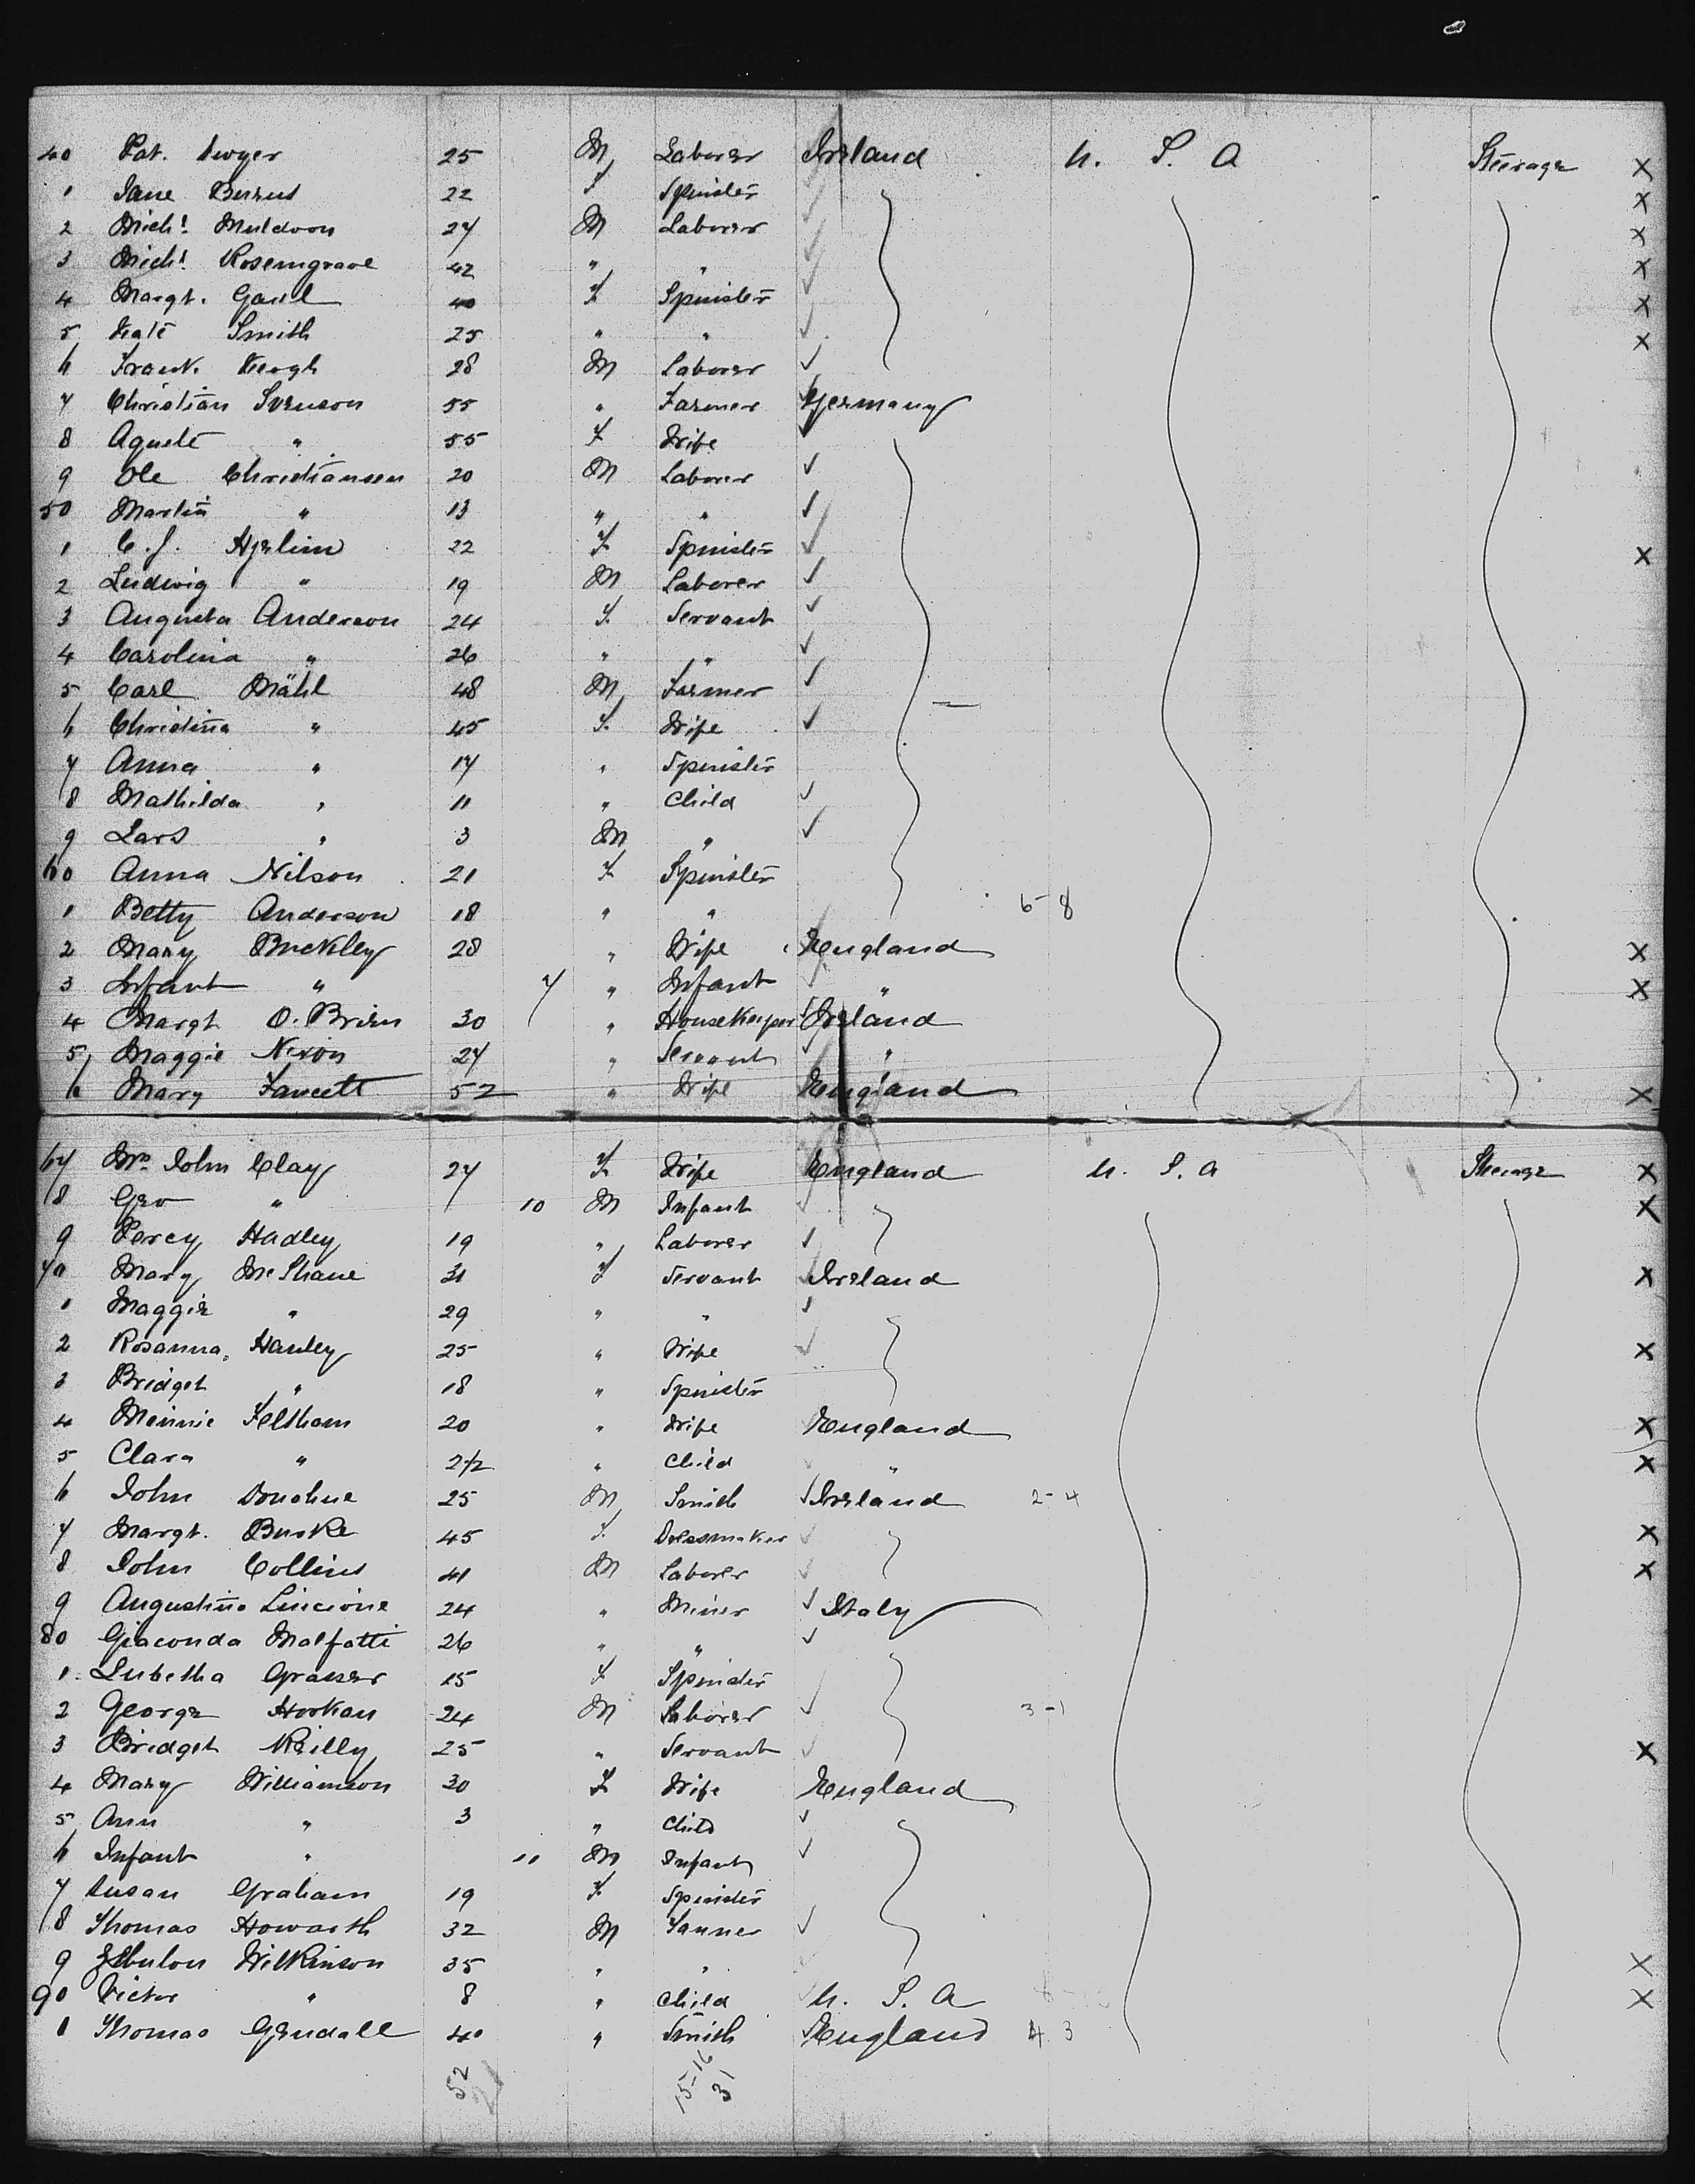 40 Pat. Dwyer 25 M Laborer Ireland U. S. A Steerage X
1 Jane Burns 22 F Spinster X
2 Michl. Muldoon 27 M Laborer X
3 Michl. Rosemgrave 42 " " X
4 Margt. Gaul 40 F Spinster X
5 Kate Smith 25 " " X
6 Frank. Keogh 28 M Laborer
7 Christian Svenson 55 " Farmer Germany
8 Agnete " 55 F Wife
9 Ole Christiansen 20 M Laborer
50 Martin " 13 " "
1 C. J. Hjelim 22 F Spinster X
2 Ludwig " 19 M Laborer
3 Augusta Anderson 24 F. Servant
4 Carolina " 26 " "
5 Carl Mähl 48 M Farmer
6 Christina " 45 F. Wife
7 Anna " 17 " Spinster
8 Mathilda " 11 " Child
9 Lars " 3 M "
60 Anna Nilson 21 F Spinster
1 Betty Anderson 18 " " 6-8
2 Mary Buckley 28 " Wife England X
3 Infant " 7 " Infant " X
4 Margt O. Brien 30 " Housekeeper Ireland
5 Maggie Nixon 27 " Servant "
6 Mary Fawcett 52 " Wife England X
67 Mrs John Clay 27 F Wife England U. S. A Steerage X
8 Geo " 10 M Infant X
9 Percy Hadley 19 " Laborer
70 Mary McShane 31 F Servant Ireland X
1 Maggie " 29 " "
2 Rosanna Hanley 25 " Wife X
3 Bridget " 18 " Spinster
4 Minnie Feltham 20 " Wife England X
5 Clara " 2 1/2 " Child " X
6 John Donohue 25 M Smith Ireland 2-4
7 Margt. Burke 45 F. Dressmaker X
8 John Collins 41 M Laborer X
9 Augustino Lincione 24 " Miner Italy
80 Giaconda Malfatti 26 " "
1 Lubetha Grasser 15 F Spinster
2 George Hookan 24 M Laborer 3-1
3 Bridget Reilly 25 " Servant X
4 Mary Williamson 30 F Wife England
5 Ann " 3 " Child
6 Infant " 11 M Infant
7 Susan Graham 19 F. Spinster
8 Thomas Howarth 32 M Tanner
9 Zebulon Wilkinson 35 " " X
90 Victor " 8 " Child U. S. A X
1 Thomas Gendall 40 " Smith England 4 3
52 15-16
31